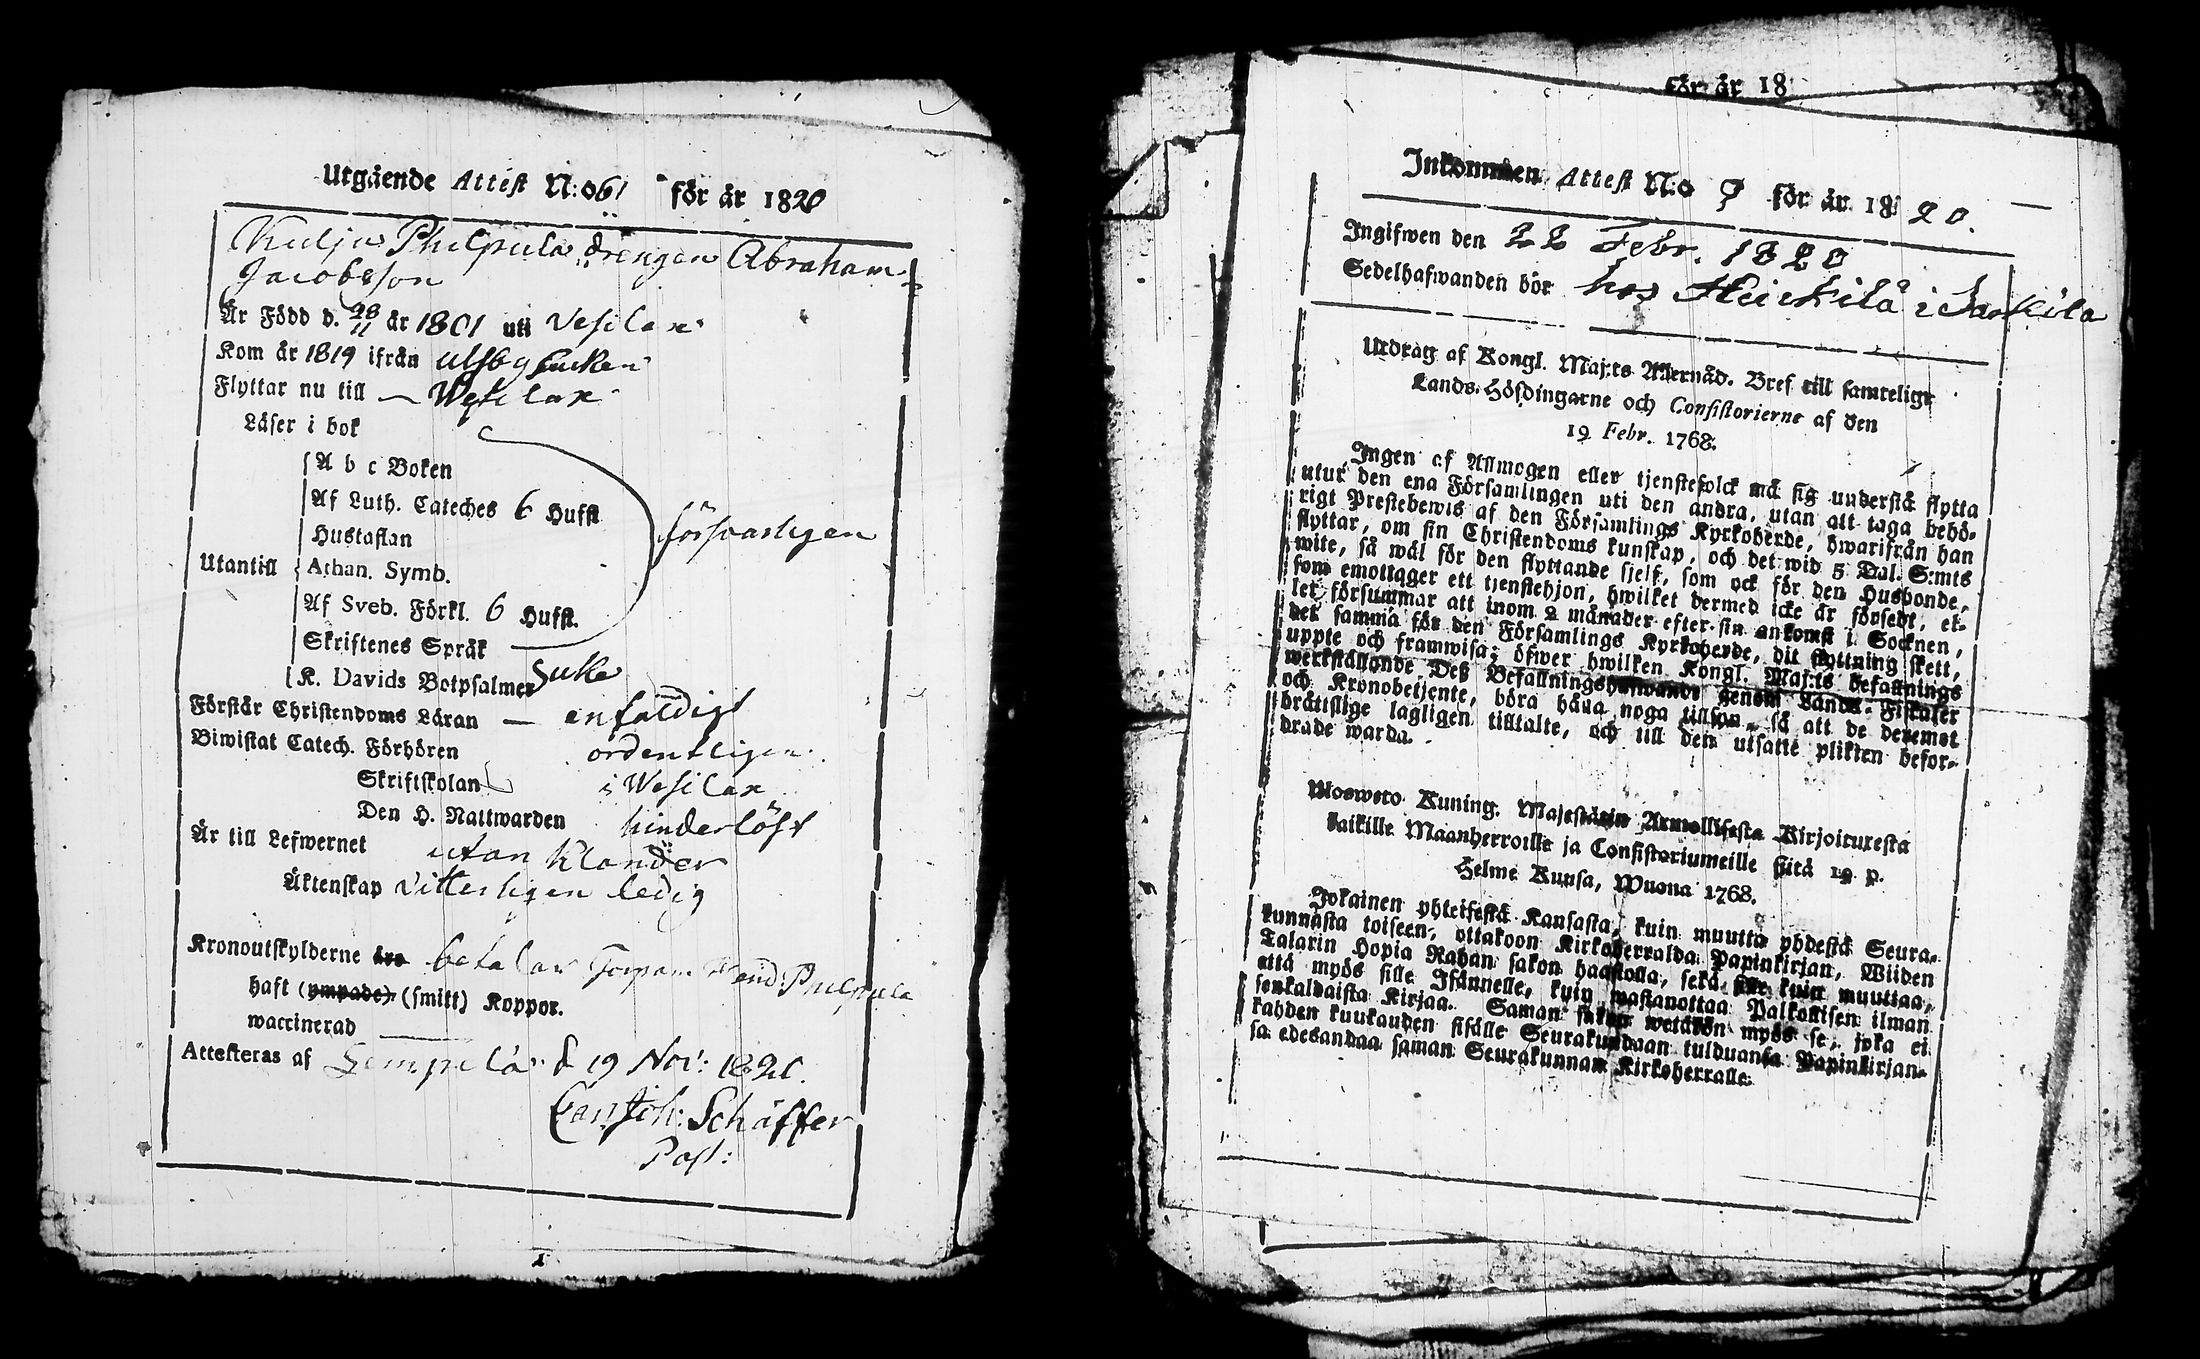 Utgående Attest N:o 61 för år 1820
Kulju Philpula drengen Abraham
Jacobsson
Är Född d. 28/11 år 1801 uti Vesilax
Kom år 1819 ifrån
Flyttar nu till — Wesilax
Läser i bok
A b c Boken
Af Luth. Cateches 6 Hufst
Hustaflan
försvarligen
Utantill
Athan. Symb.
Af Sveb. Förkl. 6 Hufst.
Skriftenes Språk
K. Davids Botpsalmer
Förstår Christendoms Läran — enfaldigt
Biwistat Catech. Förhören ordentligen
Skriftskolan i Wesilax
Den H. Nattwarden hinderlöst
Är till Lefwernet utan klander
Äktenskap vitterligen ledig
Kronoutskylderne äro betalar Philpula
haft (ympade) (smitt) Koppor.
waccinerad
Attesteras af Lempela d 19 Nov: 1820.
Schäffer
Past:
för år 18
Inkommen Attest N:o 9 för år 18 20.
Ingifwen den 22 Febr. 1820
Sedelhafwanden bör hos Heickilä i
Utdrag af Kongl. Maj:ts Allernåd. Bref till samtelige
Lands-Höfdingarne och Consistorierne af den
19 Febr. 1768.
Ingen af Allmogen eller tjenstefolck må sig understå flytta
utur den ena Församlingen uti den andra, utan att taga behö-
rigt Prestebewis af den Församlings Kyrkoherde, hwarifrån han
flyttar, om sin Christendoms kunskap, och det wid 5 Dal. S:mts
wite, så wäl för den flyttande sjelf, som ock för den Husbonde,
som emottager ett tjenstehjon, hwilket dermed icke är försedt, el-
ler försummar att inom 2 månader efter sin ankomst i Socknen,
det samma för den Församlings Kyrkoherde, dit flyttning skett,
uppte och framwisa; öfwer hwilken Kongl. Maj:ts befallnings
werkställande Deß Befallningshafwande genom Lands-Fiskaler
och Kronobetjente, böra hafwa noga tillsyn, så att de deremot
bråttslige lagligen tilltalte, och till den utsatte plikten befor-
drade warda.
Uloswето Kuning. Majestätin Armollisesta Kirjoituxesta
kaikille Maanherroille ja Consistoriumeille siitä 19 p.
Helme Kuusa, Wuona 1768.
Jokainen yhteisestä Kansasta, kuin muutta yhdestä Seura-
kunnasta toiseen, ottakoon Kirkoherralda Papinkirjan, Wiiden
Talarin Hopia Rahan sakon haastolla, sekä sille kuin muuttaa,
että myös sille Isännelle, kuin wastanottaa Palkollisen ilman
senkaldaista Kirjaa. Saman sakon wetäkön myös se, joka ei
kahden kuukauden sisälle Seurakundaan tulduansa Papinkirjan-
sa edesandaa saman Seurakunnan Kirkoherralle.